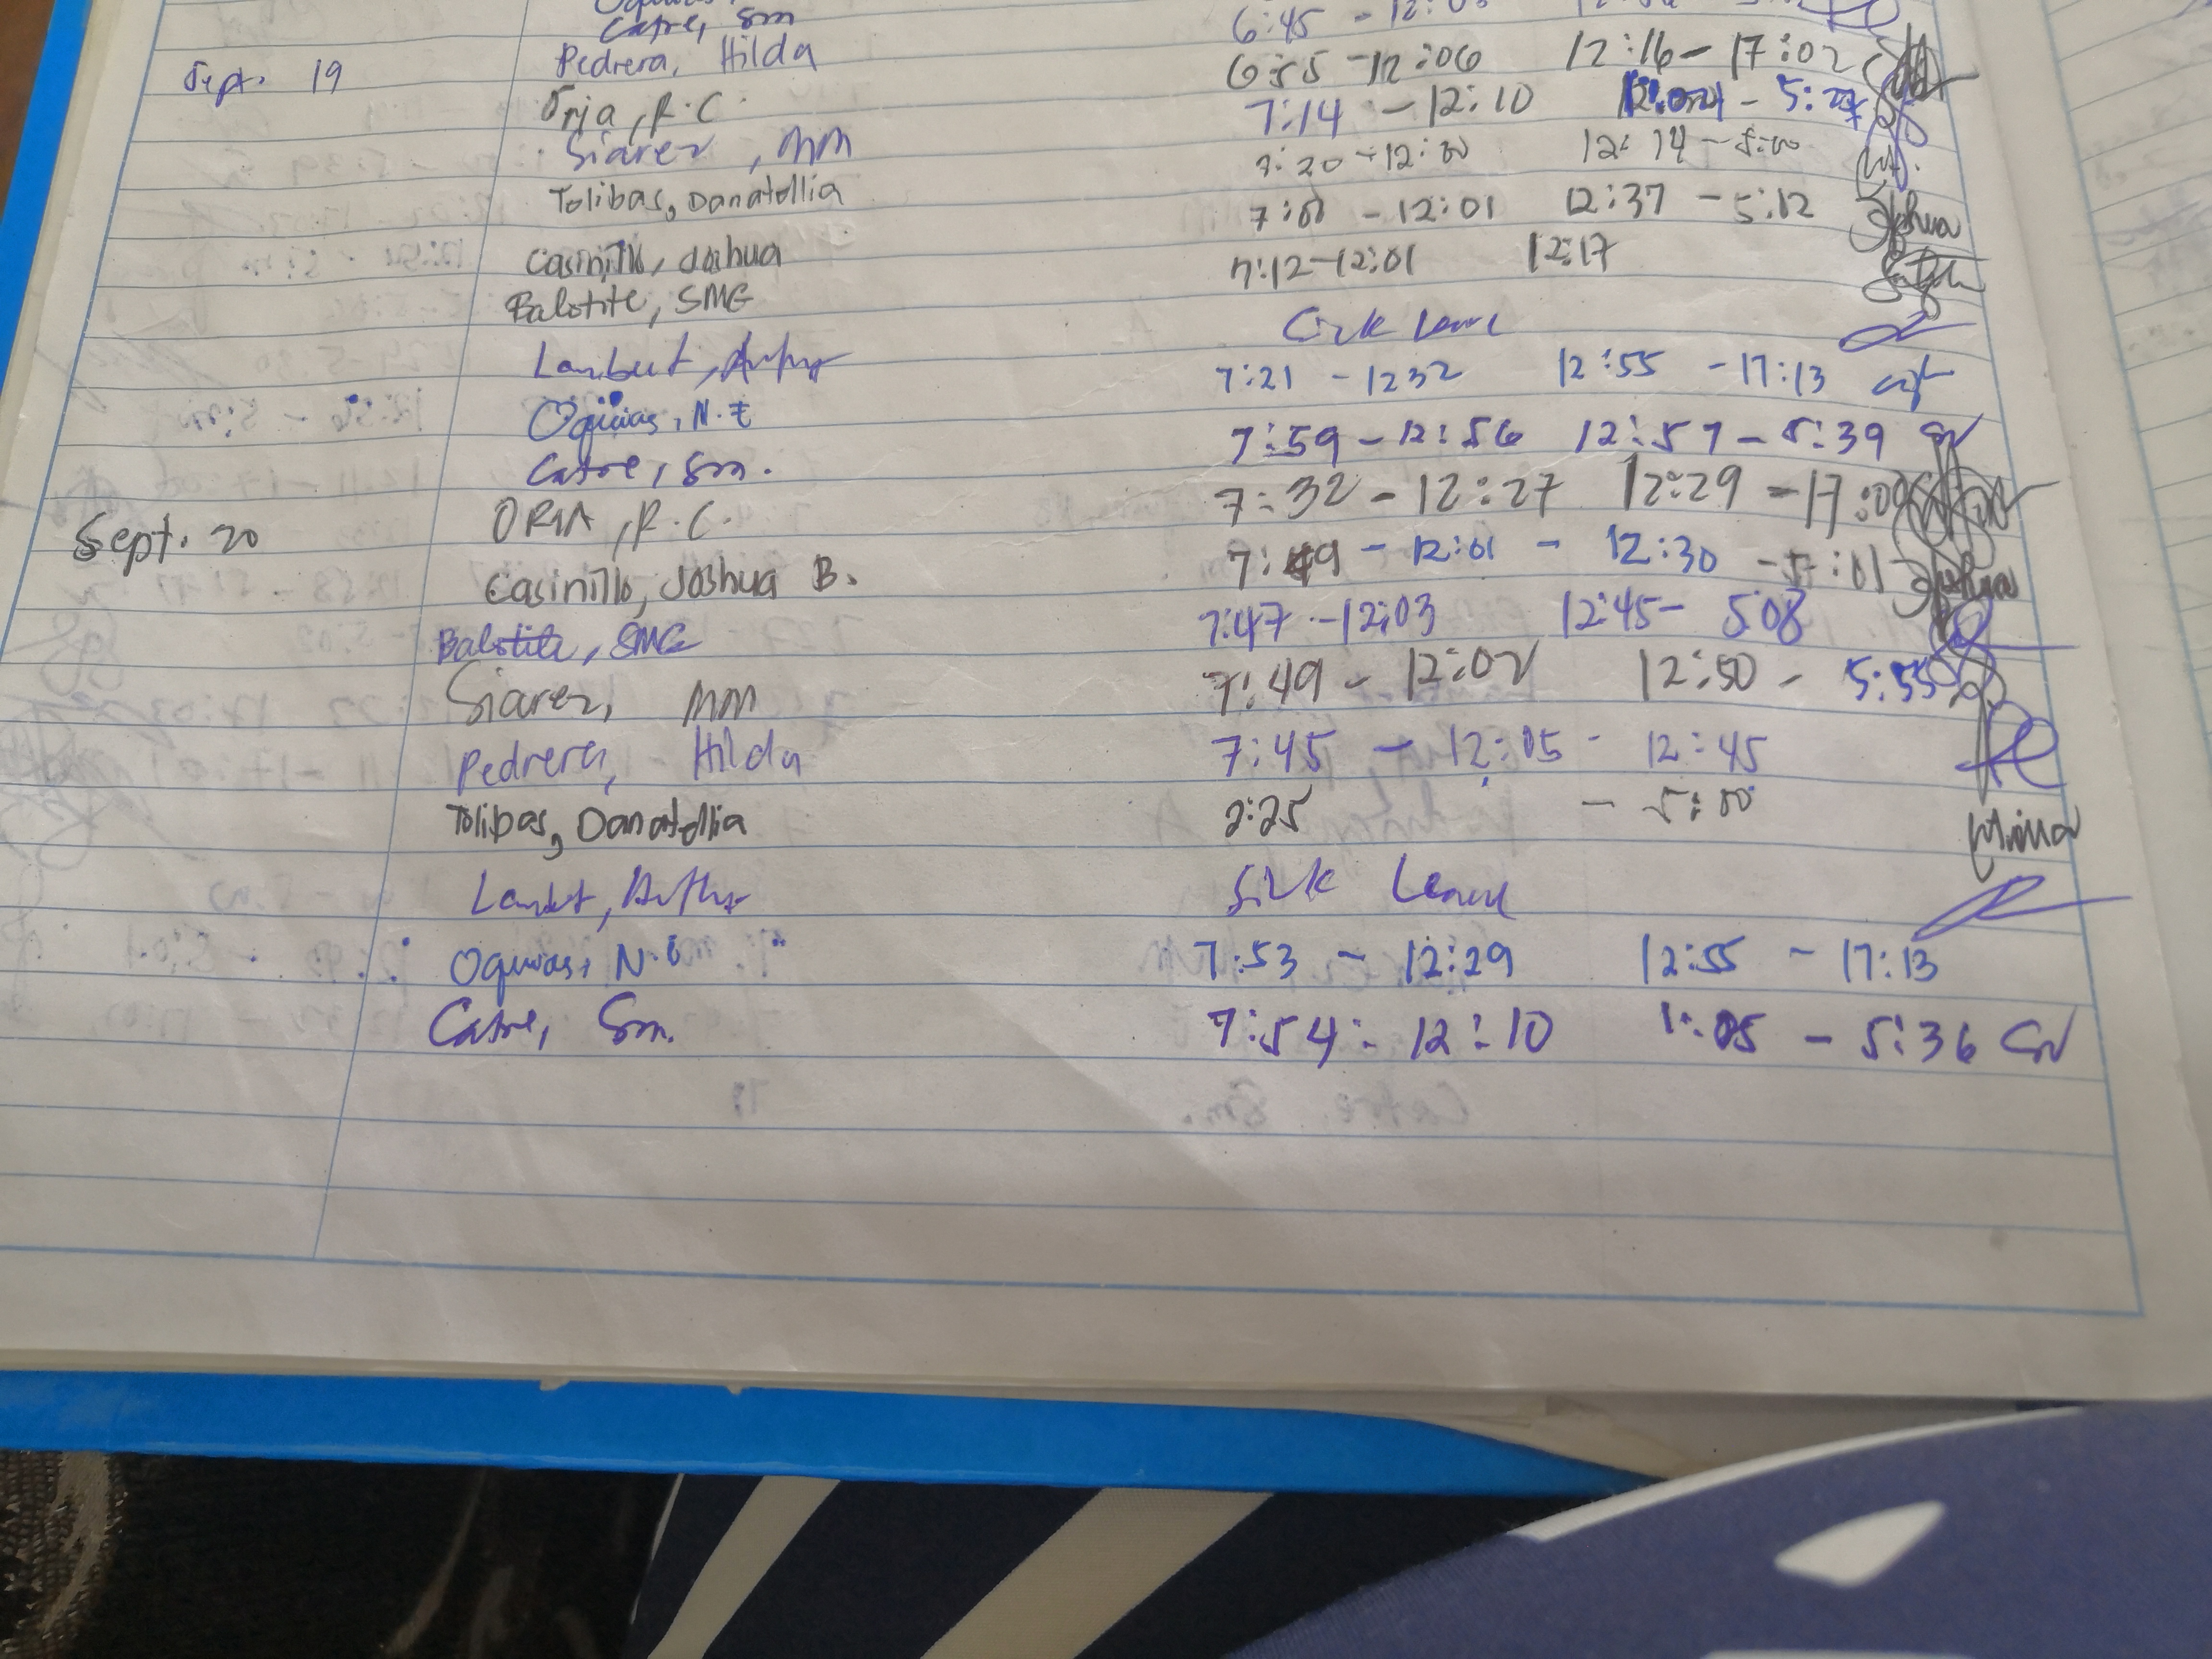 Catre, Sm 6:45 -
Sept. 19 Pedrera, Hilda 6:55 - 12:06 12:16 - 17:02
Oria, R.C. 7:14 - 12:10
Siarez, MM 7:20 - 12:00 12:14 - 5:00
Tolibas, Danatellia - 12:01 12:37 - 5:12
Casinillo, Joshua 7:12 - 12:01 12:17 Joshua
Balotite, SMG
Lambert, Sick Leave
Oquias, N.E 7:21 - 1232 12:55 - 17:13
Catre, Sm. 7:59 - 12:56 12:57 - 5:39
Sept. 20 ORIA, R.C. 7:32 - 12:27 12:29 - 17:00
Casinillo, Joshua B. 7:49 - 12:01 - 12:30 - 5:01 Joshua
Balotite, SMG 7:47 - 12:03 12:45 - 5:08
Siarez, MM 7:49 - 12:02 12:50 - 5:55
Pedrera, Hilda 7:45 - 12:05 - 12:45
Tolibas, Danatellia 2:25 - 5:00
Lambert, Arthur Sick Leave
Oquias, N.E 7:53 - 12:29 12:55 - 17:13
Catre, Sm. 7:54 - 12:10 1:05 - 5:36